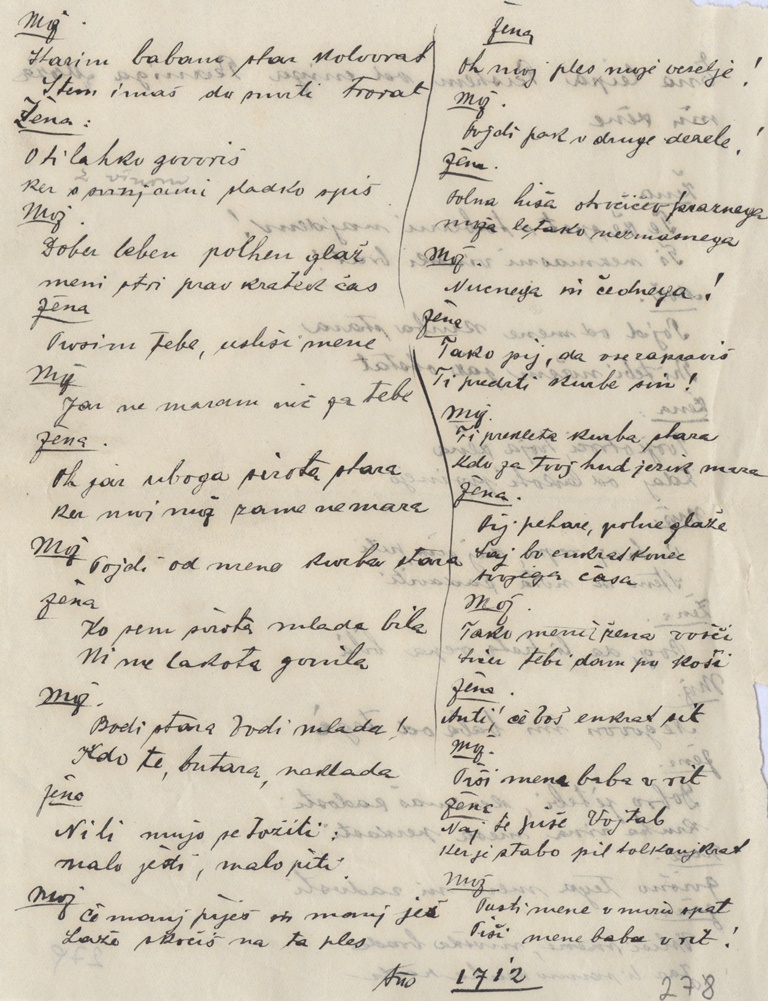 Mož.
Starim babam, star kolovrat
S tem imaš do smrti Trovat
Žena:
O ti lahko govoriš
ker s svinjami sladko spiš
Mož.
Dober leben polhen glaž
meni stri prav kratek čas
Žena
Prosim Tebe, usliši mene
Mož
Jaz ne maram nič za tebe
Žena.
Oh jaz uboga sirota stara
ker moj mož zame nemara
Mož
Pojdi od mene kurba stara
žena
Ko sem sirota mlada bila
Ni me lakota gonila
Mož.
Bodi stara bodi mlada!
Kdo te, butara, naklada
žena
Ni ti mujo se tožiti:
malo jesti, malo piti.
Mož
Če manj piješ in manj ješ
Lažo skočiš na ta ples
Žena
Oh moj ples moje veselje!
Mož.
Pojdi pak v druge dežele!
žena.
Polna hiša otročičev praznega
moža le tako nermasnega
Mož.
Nucnega in čednega!
žena
Tako pij, da vse zapraviš
Ti predrti kurbe sin!
Mož.
Ti prekleta kurba stara
Kdo za tvoj hud jezik mara
žena.
Pij pehare, polne glaže
Saj bo enkrat konec
tvojega časa
Mož.
Tako meni žena vošči
tebi dam po koši
žena.
Anti! če boš enkrat sit
Mož.
Piši mene baba v rit
žena
Naj te piše Vojtab
Ker je stabo pil tolkanjkrat
Mož
Pusti mene v miru spat
Piši mene baba v rit!
Ano 1712
278